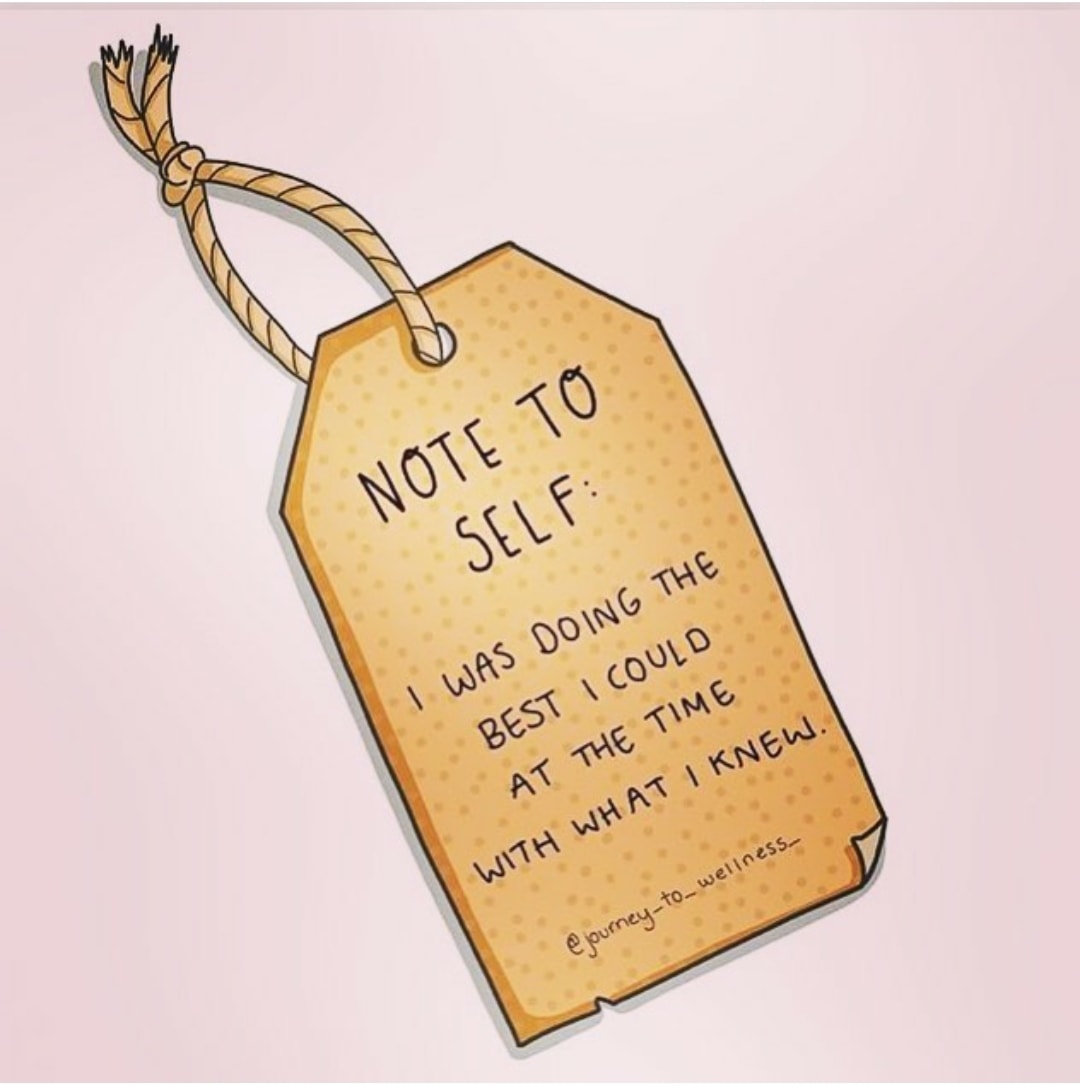 NOTE TO
SELF:
I WAS DOING THE
BEST I COULD
AT THE TIME
WITH WHAT I KNEW.
@journey_to_wellness_